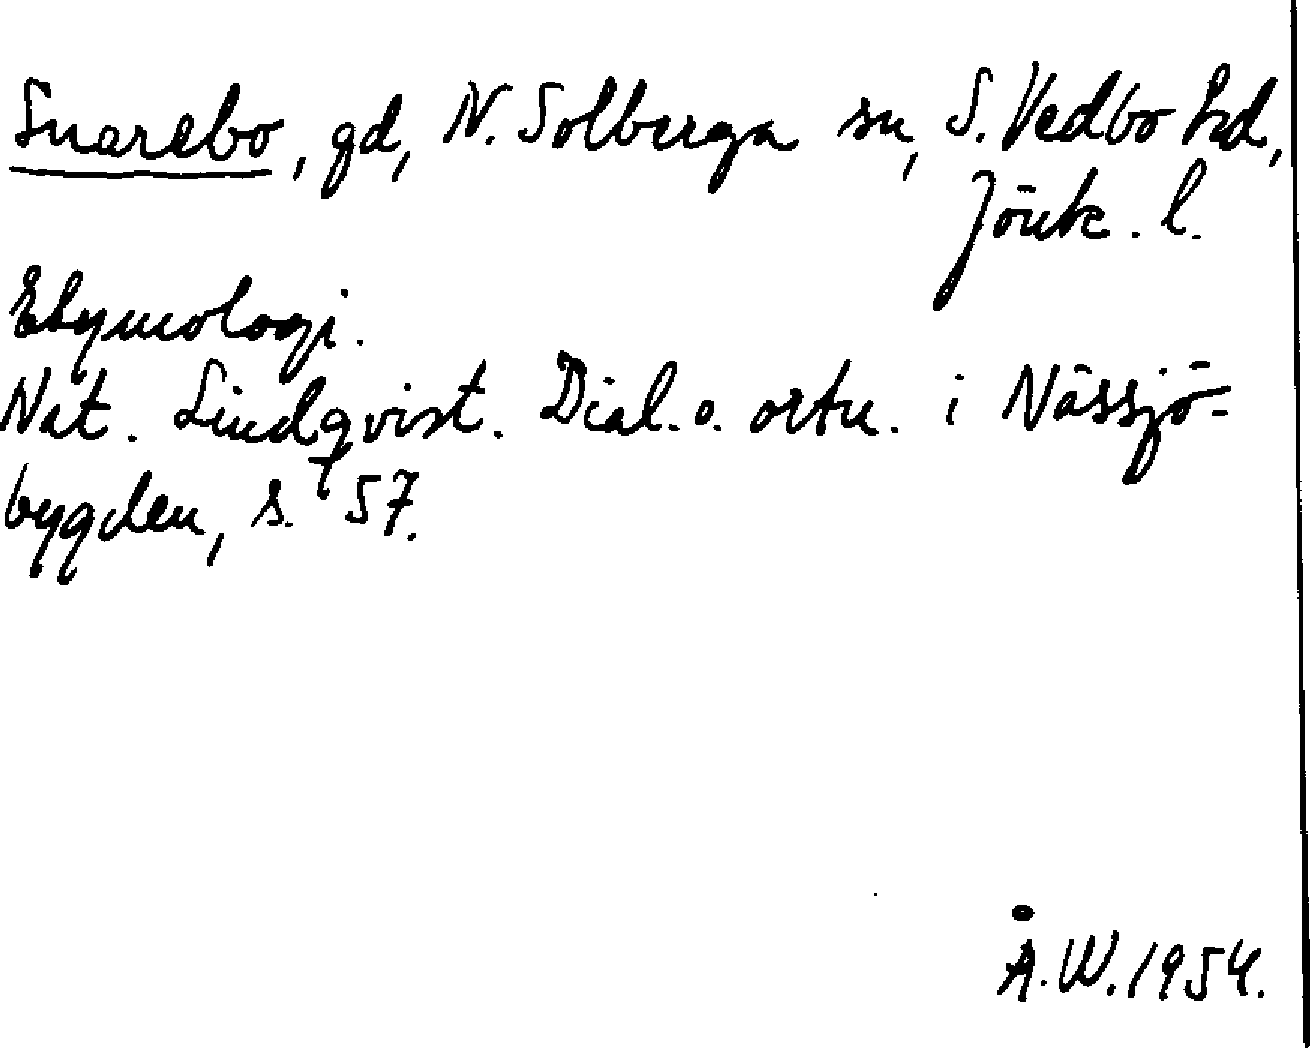 Snarebo, gd, N. Solberga sn, S. Vedbo hd,
Jönk. l.
Etymologi.
Nat. Lindqvist. Dial. o. ortn. i Nässjö-
bygden, s. 57.
Å.W. 1954.